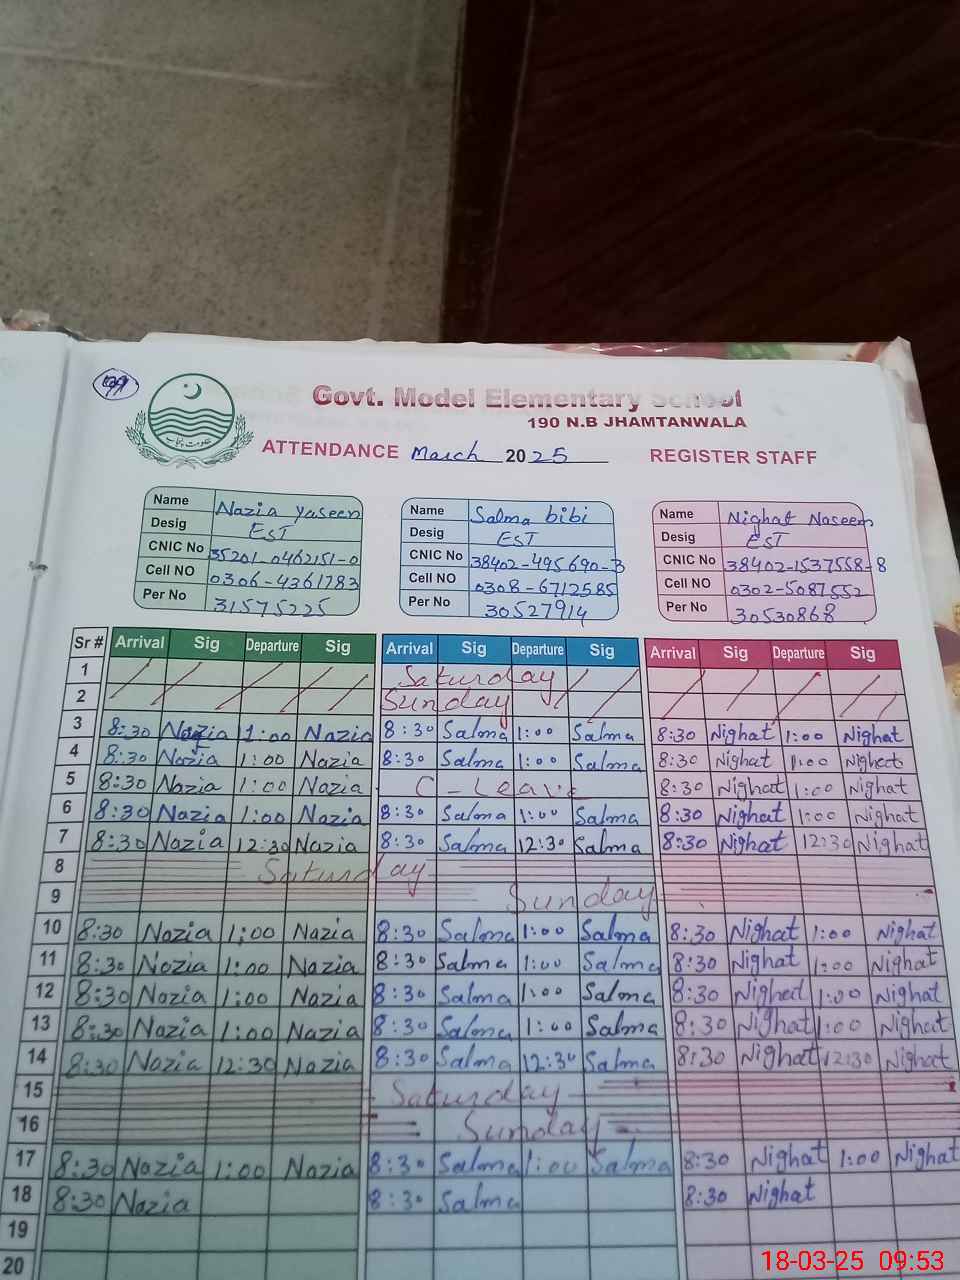 99
Govt. Model Elementary School
190 N.B JHAMTANWALA
حکومت پنجاب
ATTENDANCE March 2025 REGISTER STAFF
Name Nazia yaseen
Desig EST
CNIC No 35201-0462151-0
Cell NO 0306-4361783
Per No 31575225
Name Salma bibi
Desig EST
CNIC No 38402-495690-3
Cell NO 0308-6712585
Per No 30527914
Name Nighat Naseem
Desig EST
CNIC No 38402-1537558-8
Cell NO 0302-5087552
Per No 30530868
Sr # Arrival Sig Departure Sig Arrival Sig Departure Sig Arrival Sig Departure Sig
1 Saturday
2 Sunday
3 8:30 Nazia 1:00 Nazia 8:30 Salma 1:00 Salma 8:30 Nighat 1:00 Nighat
4 8:30 Nazia 1:00 Nazia 8:30 Salma 1:00 Salma 8:30 Nighat 1:00 Nighat
5 8:30 Nazia 1:00 Nazia C-Leave 8:30 Nighat 1:00 Nighat
6 8:30 Nazia 1:00 Nazia 8:30 Salma 1:00 Salma 8:30 Nighat 1:00 Nighat
7 8:30 Nazia 12:30 Nazia 8:30 Salma 12:30 Salma 8:30 Nighat 12:30 Nighat
8 Saturday
9 Sunday
10 8:30 Nazia 1:00 Nazia 8:30 Salma 1:00 Salma 8:30 Nighat 1:00 Nighat
11 8:30 Nazia 1:00 Nazia 8:30 Salma 1:00 Salma 8:30 Nighat 1:00 Nighat
12 8:30 Nazia 1:00 Nazia 8:30 Salma 1:00 Salma 8:30 Nighat 1:00 Nighat
13 8:30 Nazia 1:00 Nazia 8:30 Salma 1:00 Salma 8:30 Nighat 1:00 Nighat
14 8:30 Nazia 12:30 Nazia 8:30 Salma 12:30 Salma 8:30 Nighat 12:30 Nighat
15 Saturday
16 Sunday
17 8:30 Nazia 1:00 Nazia 8:30 Salma 1:00 Salma 8:30 Nighat 1:00 Nighat
18 8:30 Nazia 8:30 Salma 8:30 Nighat
19
20
18-03-25 09:53